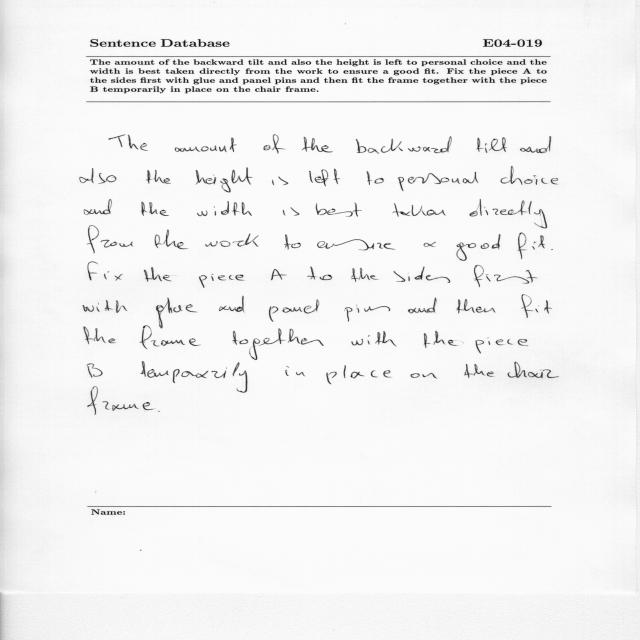 Sentence Database E04-019
The amount of the backward tilt and also the height is left to personal choice and the
width is best taken directly from the work to ensure a good fit. Fix the piece A to
the sides first with glue and panel pins and then fit the frame together with the piece
B temporarily in place on the chair frame.
The amount of the backward tilt and
also the height is left to personal choice
and the width is best taken directly
from the work to ensure a good fit.
Fix the piece A to the sides first
with glue and panel pins and then fit
the frame together with the piece
B temporarily in place on the chair
frame.
Name: